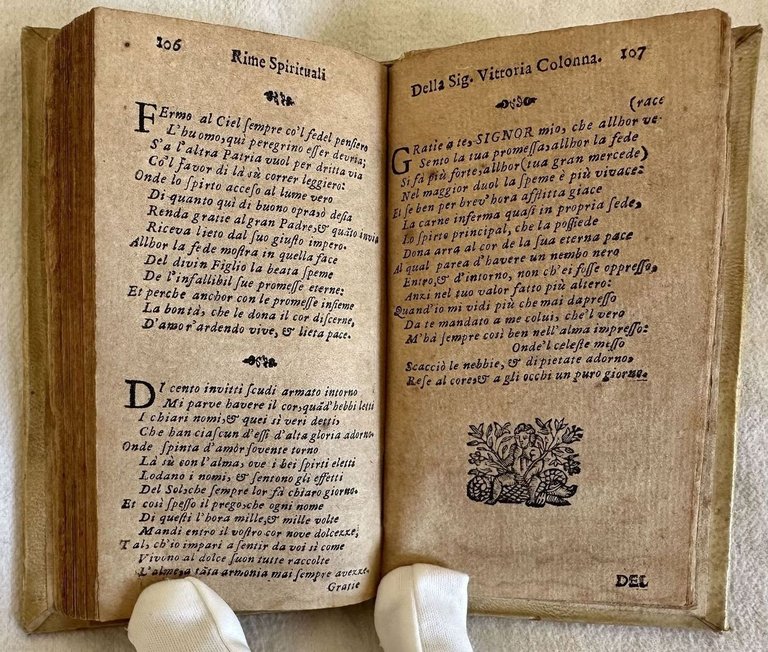 106
Rime Spirituali
FErmo al Ciel ſempre co'l fedel penſiero
L'huomo, qui peregrino eſſer devria;
S'a l'altra Patria vuol per dritta via
Co'l favor di là sù correr leggiero:
Onde lo ſpirto acceſo al lume vero
Di quanto quì di buono opra, ò deſia
Renda gratie al gran Padre, & quãto invia
Riceva lieto dal ſuo giuſto impero.
Allhor la fede moſtra in quella face
Del divin Figlio la beata ſpeme
De l'infallibil ſue promeſſe eterne:
Et perche anchor con le promeſſe inſieme
La bontà, che le dona il cor diſcerne,
D'amor'ardendo vive, & lieta pace.
DI cento invitti ſcudi armato intorno
Mi parve havere il cor, quãd'hebbi letti
I chiari nomi, & quei sì veri detti,
Che han ciaſcun d'eſſi d'alta gloria adorno.
Onde ſpinta d'amòr ſovente torno
Là sù con l'alma, ove i bei ſpirti eletti
Lodano i nomi, & ſentono gli effetti
Del Sol, che ſempre lor fà chiaro giorno.
Et così ſpeſſo il prego, che ogni nome
Di queſti l'hora mille, & mille volte
Mandi entro il voſtro cor nove dolcezze;
Tal, ch'io impari a ſentir da voi sì come
Vivono al dolce ſuon tutte raccolte
L'alme, a tãta armonia mai ſempre avezze.
Gratie
Della Sig. Vittoria Colonna.
107
(race
GRatie a te, SIGNOR mio, che allhor ve-
Sento la tua promeſſa, allhor la fede
Si fà più forte, allhor (tua gran mercede)
Nel maggior duol la ſpeme è più vivace:
Et ſe ben per brev'hora afflitta giace
La carne inferma quaſi in propria ſede,
Lo ſpirto principal, che la poſſiede
Dona arra al cor de la ſua eterna pace
Al qual parea d'havere un nembo nero
Entro, & d'intorno, non ch'ei foſſe oppreſſo,
Anzi nel tuo valor fatto più altero:
Quand'io mi vidi più che mai dapreſſo
Da te mandato a me colui, che'l vero
M'hà ſempre così ben nell'alma impreſſo:
Onde'l celeſte meſſo
Scacciò le nebbie, & di pietate adorno,
Reſe al core, & a gli occhi un puro giorno.
DEL